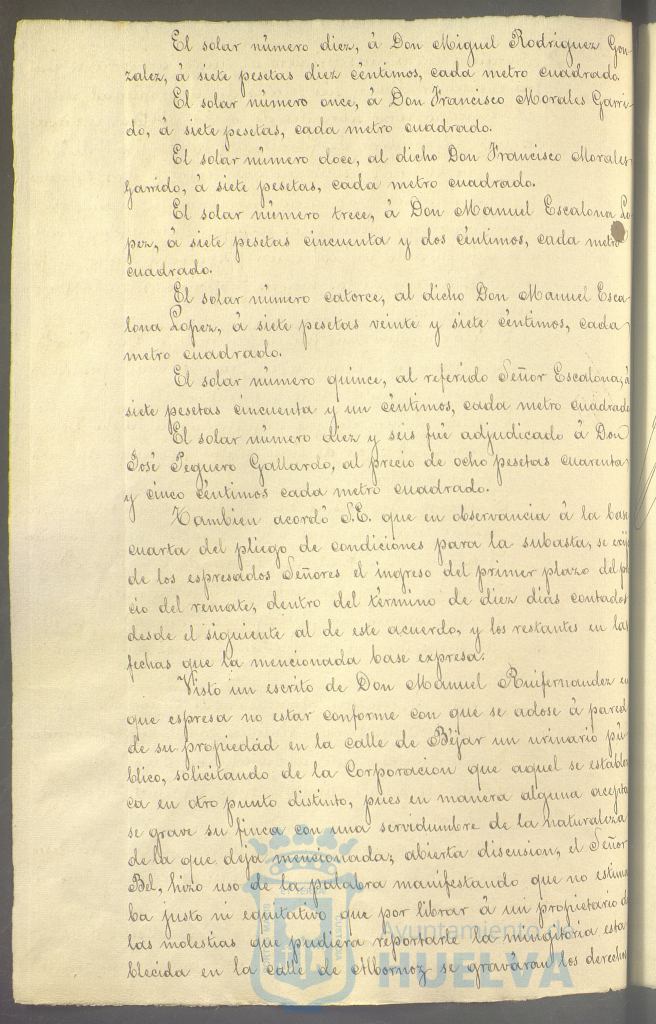 El solar número diez, á Don Miguel Rodriguez Gon-
zalez, á siete pesetas diez céntimos, cada metro cuadrado.
El solar número once, á Don Francisco Morales Garri-
do, á siete pesetas, cada metro cuadrado.
El solar número doce, al dicho Don Francisco Morales
Garrido, á siete pesetas, cada metro cuadrado.
El solar número trece, á Don Manuel Escalona Lo
pez, á siete pesetas cincuenta y dos céntimos, cada metro
cuadrado.
El solar número catorce, al dicho Don Manuel Esca-
lona Lopez, á siete pesetas veinte y siete céntimos, cada
metro cuadrado.
El solar número quince, al referido Señor Escalona, á
siete pesetas cincuenta y un céntimos, cada metro cuadrado
El solar número diez y seis fué adjudicado á Don
José Peguero Gallardo, al precio de ocho pesetas cuarenta
y cinco céntimos cada metro cuadrado.
Tambien acordó S.E. que en observancia á la base
cuarta del pliego de condiciones para la subasta, se exij
de los espresados Señores el ingreso del primer plazo del
cio del remate, dentro del término de diez dias contados
desde el siguiente al de este acuerdo, y los restantes en las
fechas que la mencionada base expresa.
Visto un escrito de Don Manuel Ruifernandez en
que espresa no estar conforme con que se adose á pared
de su propiedad en la calle de Béjar un urinario pú
blico, solicitando de la Corporacion que aquel se establez
ca en otro punto distinto, pues en manera alguna acepta
se grave su finca con una servidumbre de la naturaleza
de la que deja mencionada; abierta discusion, el Señor
Bel, hizo uso de la palabra manifestando que no estima
ba justo ni equitativo que por librar á un propietario de
las molestias que pudiera reportarle la mingitoria esta
blecida en la calle de Albornoz se graváran los derechos
Ayuntamiento de
HUELVA